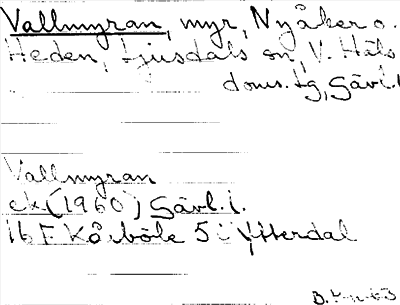 Vallmyran, myr, Nyåker o.
Heden, Ljusdals sn, V. Häls
doms. tg, Gävl. l
Vallmyran
ek. (1960) Gävl. l.
16 F Kårböle 5 i Ytterdal